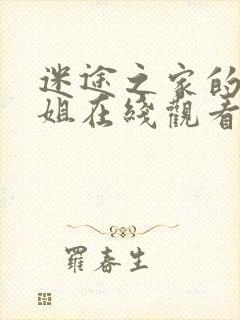 迷途之家的
姐在綫觀看
羅春生